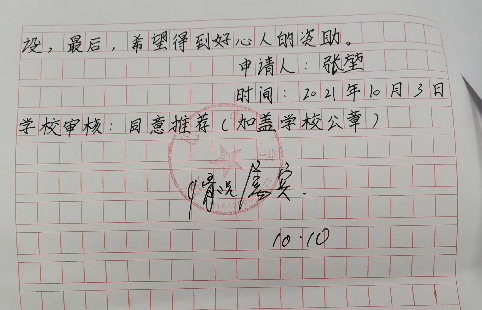 设，最后，希望得到好心人的资助。
申请人：张堃
时间：2021年10月3日
学校审核：同意推荐（加盖学校公章）
情况属实.
10.10